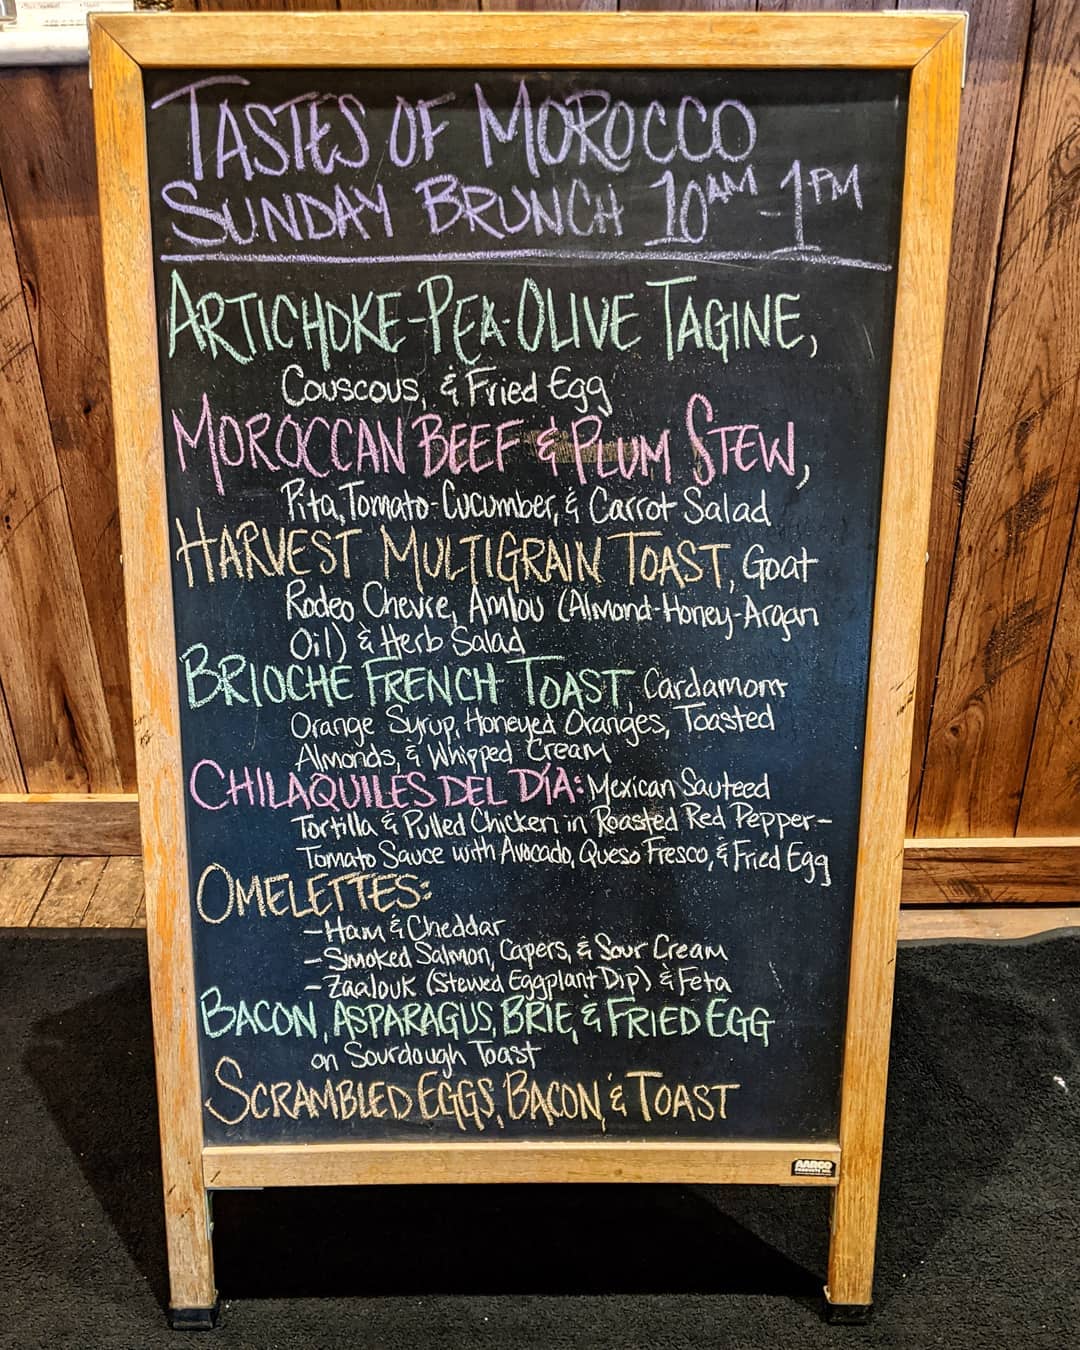 TASTES OF MOROCCO
SUNDAY BRUNCH 10AM-1PM
ARTICHOKE-PEA-OLIVE TAGINE,
Couscous, & Fried Egg
MOROCCAN BEEF & PLUM STEW,
Pita, Tomato-Cucumber, & Carrot Salad
HARVEST MULTIGRAIN TOAST, Goat
Rodeo Chevre, Amlou (Almond-Honey-Argan
Oil) & Herb Salad
BRIOCHE FRENCH TOAST, Cardamom
Orange Syrup, Honeyed Oranges, Toasted
Almonds, & Whipped Cream
CHILAQUILES DEL DÍA: Mexican Sauteed
Tortilla & Pulled Chicken in Roasted Red Pepper-
Tomato Sauce with Avocado, Queso Fresco, & Fried Egg
OMELETTES:
-Ham & Cheddar
-Smoked Salmon, Capers, & Sour Cream
-Zaalouk (Stewed Eggplant Dip) & Feta
BACON, ASPARAGUS, BRIE, & FRIED EGG
on Sourdough Toast
SCRAMBLED EGGS, BACON, & TOAST
AARCO
PRODUCTS INC.